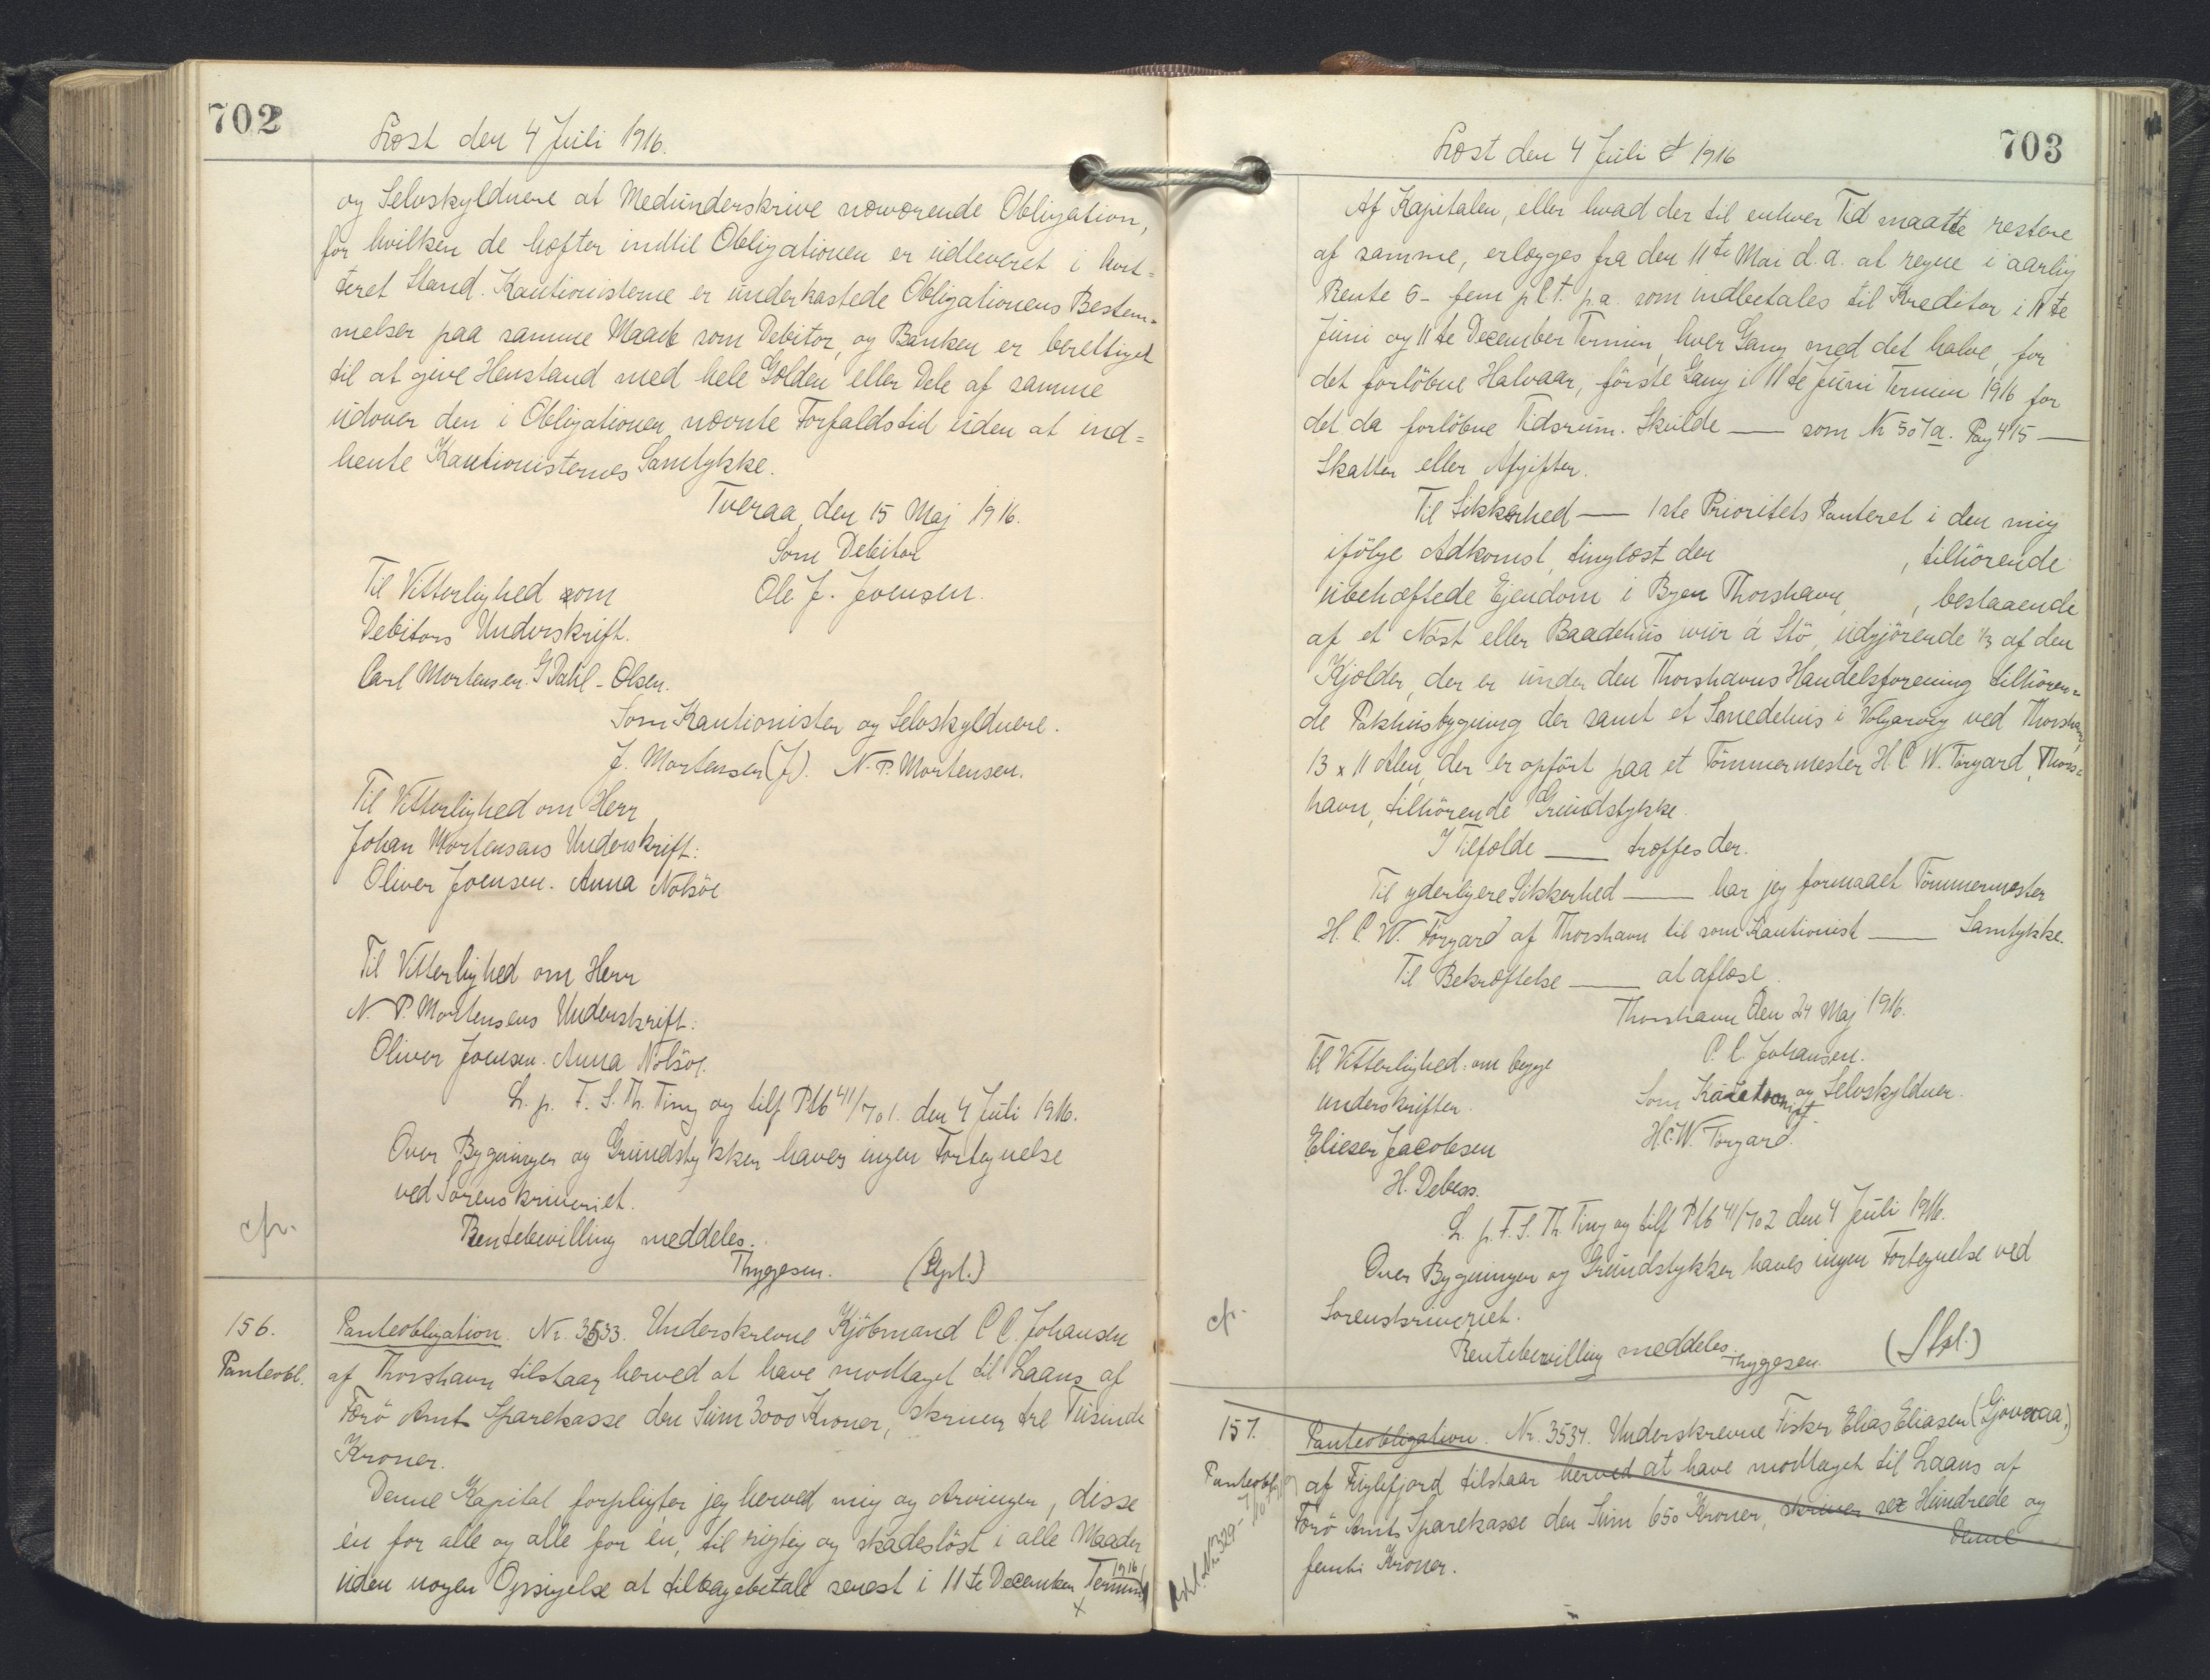 702
Læst den 4 Juli 1916.
og Selvskyldnere at Medunderskrive nærværende Obligation,
for hvilken de hæfter indtil Obligationen er udleveret i kvit=
teret Stand. Kautionisterne er underkastede Obligationens Bestem=
melser paa samme Maade som Debitor, og Banken er berettiget
til at give Henstand med hele Gælden eller Dele af samme
udover den i Obligationen nævnte Forfaldstid uden at ind=
hente Kautionisternes Samtykke.
Tveraa, den 15 Maj 1916.
Som Debitor
Til Vitterlighed som
Ole J. Joensen.
Debitors Underskrift.
Carl Mortensen. G Dahl-Olsen.
Som Kautionister og Selvskyldnere.
J. Mortensen (J). N. P. Mortensen.
Til Vitterlighed om Herr
Johan Mortensens Underskrift:
Oliver Joensen. Anna Nolsöe
Til Vitterlighed om Herr
N. P. Mortensens Underskrift:
Oliver Joensen. Anna Nolsöe.
L. p. F. S. Th. Ting og tilf Ptb 41/701. den 4 Juli 1916.
Over Bygninger og Grundstykker haves ingen Fortegnelse
ved Sorenskriveriet.
cfr.
Rentebevilling meddeles.
Thygesen. (Sgl.)
156.
Panteobl.
Panteobligation. Nr. 3533. Underskrevne Kjöbmand P C. Johansen
af Thorshavn tilstaar herved at have modtaget til Laans af
Færö Amts Sparekasse den Sum 3000 Kroner, skriver tre Tusinde
Kroner.
Denne Kapital forpligter jeg herved mig og Arvinger, disse
én for alle og alle for én, til rigtig og skadeslöst i alle Maader
uden nogen Opsigelse at tilbagebetale senest i 11te December Termin 1916
x
703
Læst den 4 Juli 1916
Af Kapitalen, eller hvad der til enhver Tid maatte restere
af samme, erlægges fra den 11te Mai d. a. at regne i aarlig
Rente 5- fem pCt. p.a. som indbetales til Kreditor i 11te
Juni og 11te December Termin, hver Gang med det halve, for
det forlöbne Halvaar, förste Gang i 11te Juni Termin 1916 for
det da forlöbne Tidsrum. Skulde —— som Nr 507a. Pag 415 ——
Skatter eller Afgifter.
Til Sikkerhed —— 1ste Prioritets Panteret i den mig
ifölge Adkomst, tinglæst den , tilhörende
übehæftede Ejendom i Byen Thorshavn, , bestaaende
af et Nöst eller Baadehus uuir á Stö, udgjörende 1/3 af den
Kjælder, der er under den Thorshavns Handelsforening tilhören=
de Pakhusbygning der samt et Smedehus i Vágarvig ved Thorshavn,
13 x 11 Alen, der er opfört paa et Tömmermester H. C W. Törgard, Thors=
havn, tilhörende Grundstykke.
I Tilfælde —— træffes der.
Til yderligere Sikkerhed —— har jeg formaaet Tömmermester
H. C. W. Törgard af Thorshavn til som Kautionist —— Samtykke.
Til Bekræftelse —— at aflæse.
Thorshavn den 24 Maj 1916.
P. C. Johansen.
Til Vitterlighed: om begge
underskrifter.
Som Kautionist og Selvskyldner.
H.C.W. Torgard.
Elieser Jacobsen
H. Debess.
L. p. F. S. Th. Ting og tilf Ptb 41/702 den 4 Juli 1916.
Over Bygninger og Grundstykker haves ingen Fortegnelse ved
cfr.
Sorenskriveriet.
Rentebevilling meddeles. Thygesen. (Sgl.)
157.
Panteobl.
Panteobligation. Nr. 3534. Underskrevne Fisker Elias Eliasen (Gjovraa,)
af Fuglefjord tilstaar herved at have modtaget til Laans af
Færö Amts Sparekasse den Sum 650 Kroner, skriver sex Hundrede og
femti Kroner.
Denne